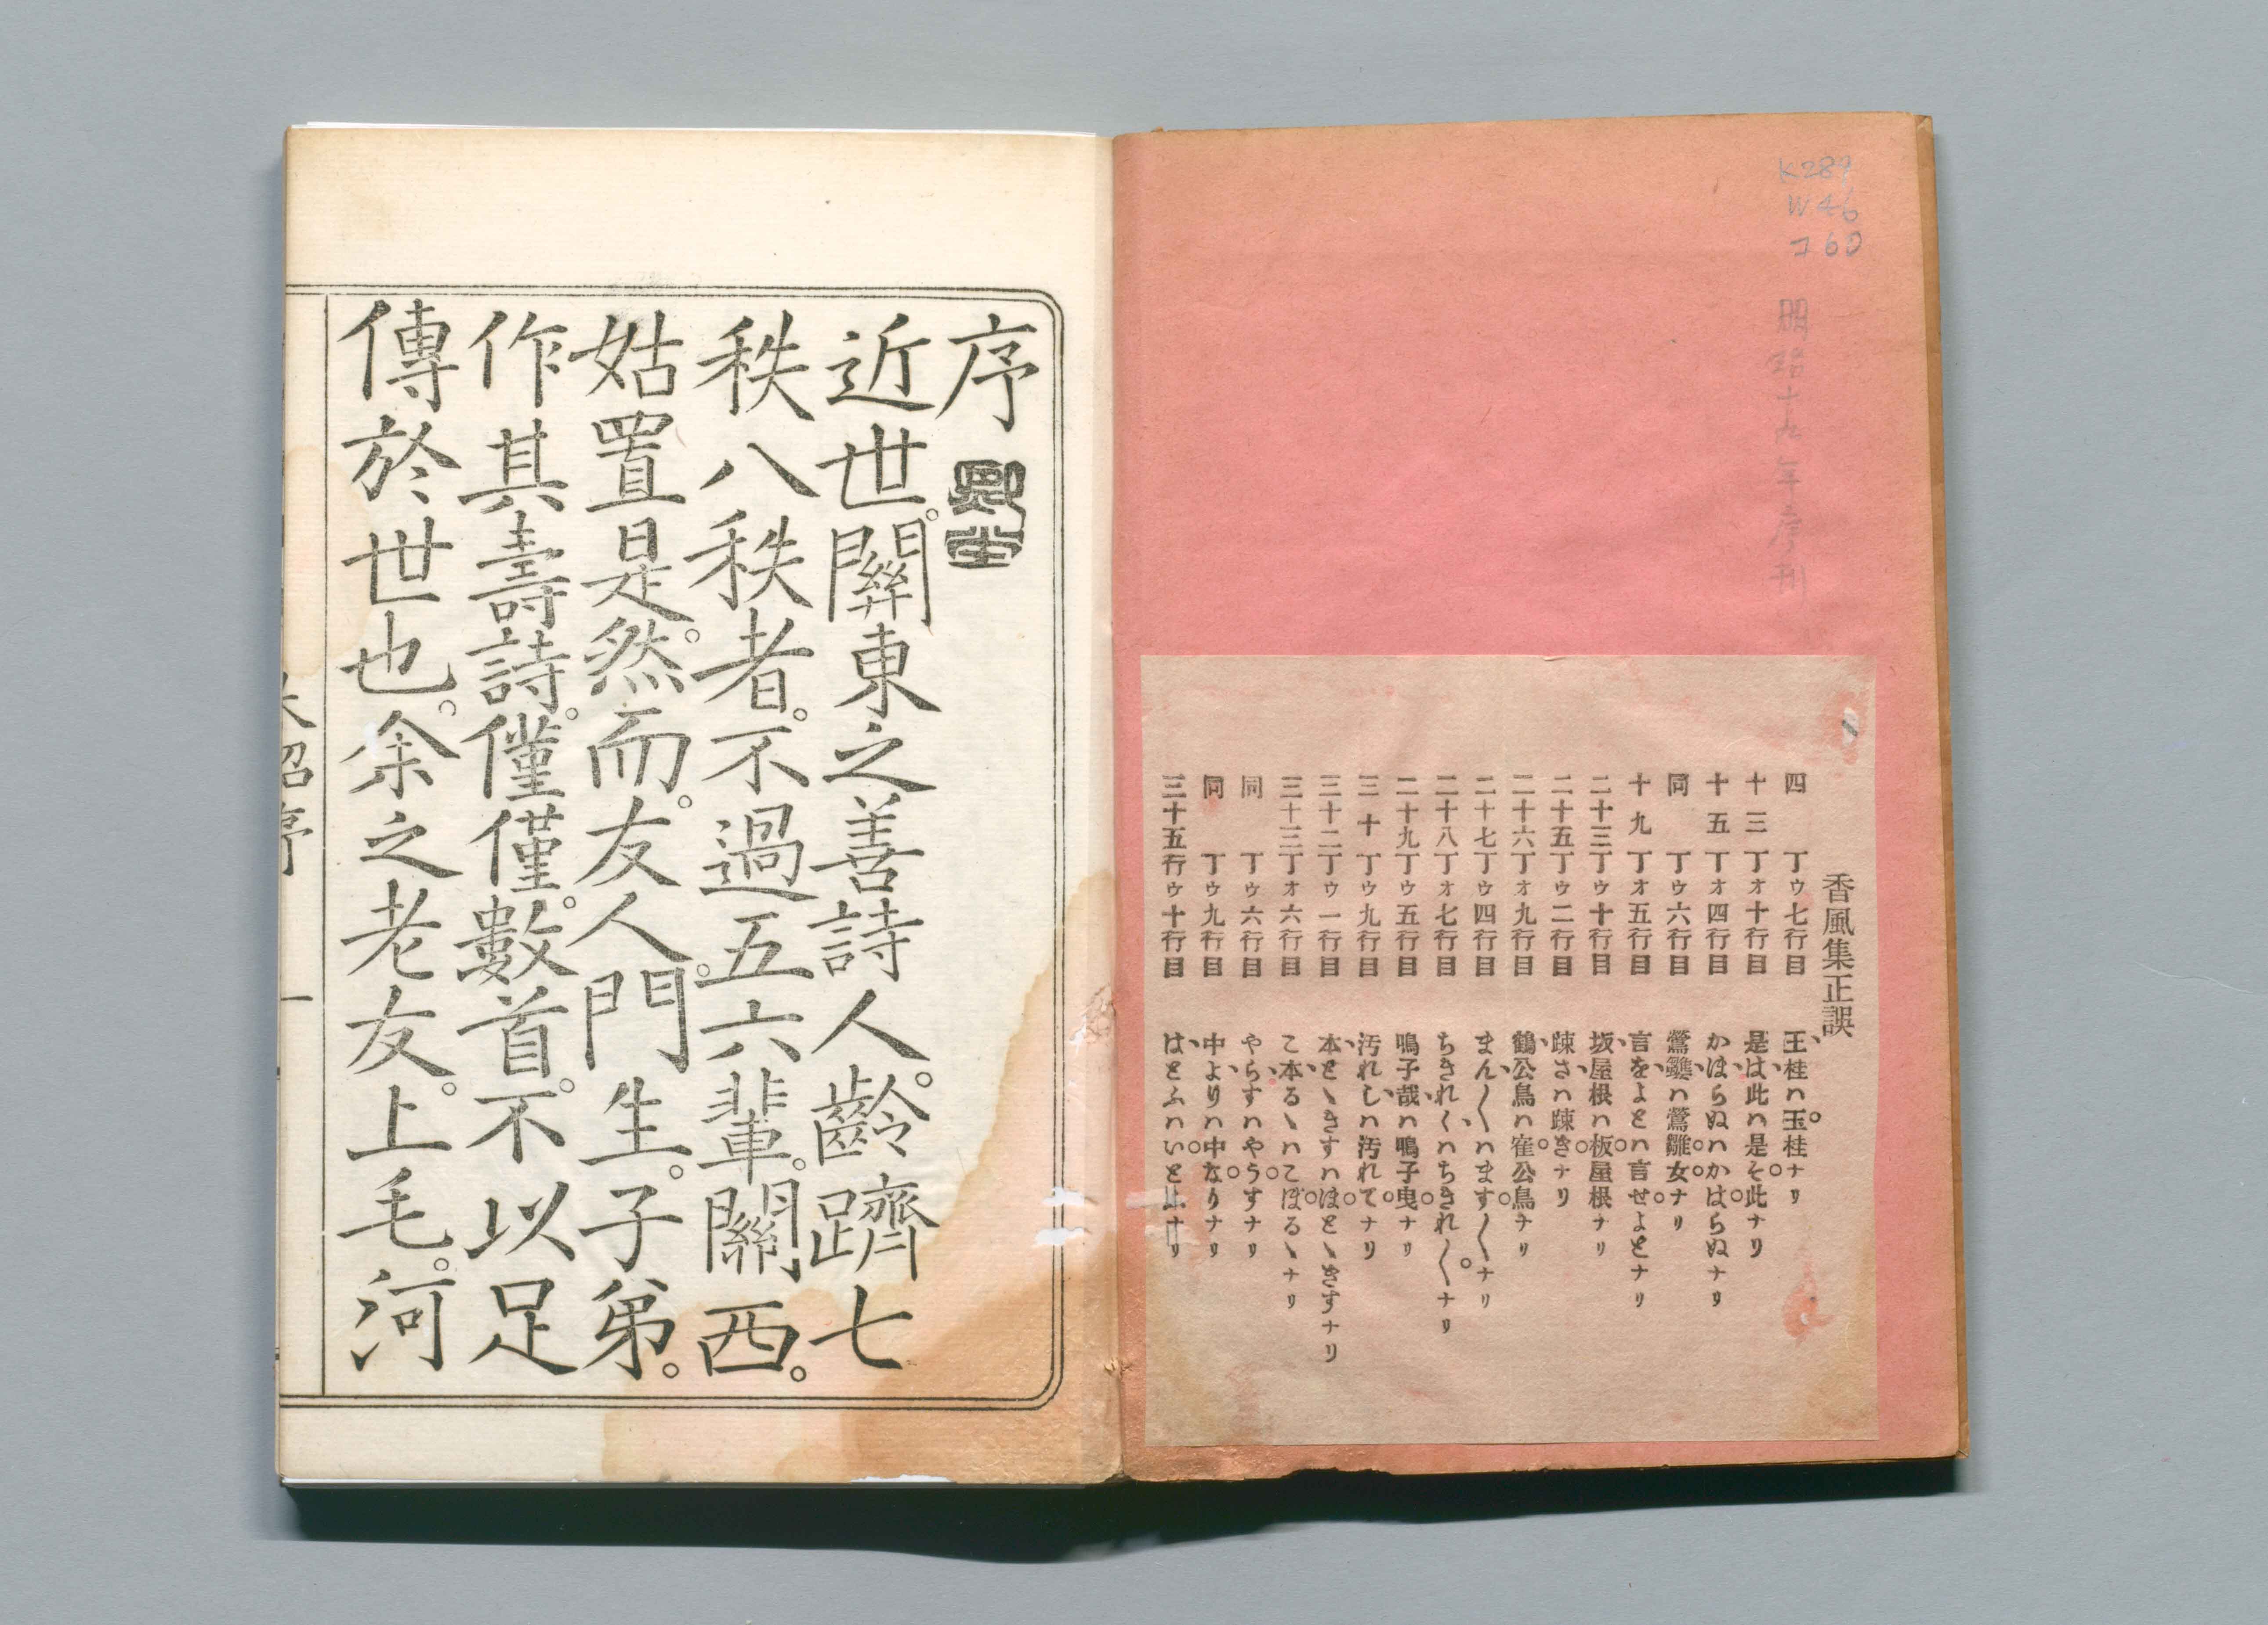 K289
W46
コ60
明治十九年序刊
香風集正誤
四丁ゥ七行目 王桂ハ玉桂ナリ
十三丁ォ十行目 是は此ハ是そ此ナリ
十五丁ォ四行目 かほらぬハかはらぬナリ
同丁ゥ六行目 鶯ハ鶯雛女ナリ
十九丁ォ五行目 言をよとハ言せよとナリ
二十三丁ゥ十行目 坂屋根ハ板屋根ナリ
二十五丁ゥ二行目 疎さハ疎きナリ
二十六丁ォ九行目 鶴公鳥ハ寉公鳥ナリ
二十七丁ゥ四行目 まん〱ハます〱ナリ
二十八丁ォ七行目 ちきれくハちきれ〱ナリ
二十九丁ゥ五行目 鳴子哉ハ鳴子曳ナリ
三十丁ゥ九行目 汚れしハ汚れてナリ
三十二丁ゥ一行目 本とヽきすハほとヽきすナリ
三十三丁ォ六行目 こ本るヽハこぼるヽナリ
同丁ゥ六行目 やらすハやうすナリ
同丁ゥ九行目 中よりハ中なりナリ
三十五行ゥ十行目 はとふハいとふナリ
序
近世。關東之善詩人。齡躋七
秩八秩者。不過五六輩。關西。
姑置是。然而。友人。門生。子弟。
作其壽詩。僅僅。數首。不以足
傳於世也。余之老友。上毛。河
序 一